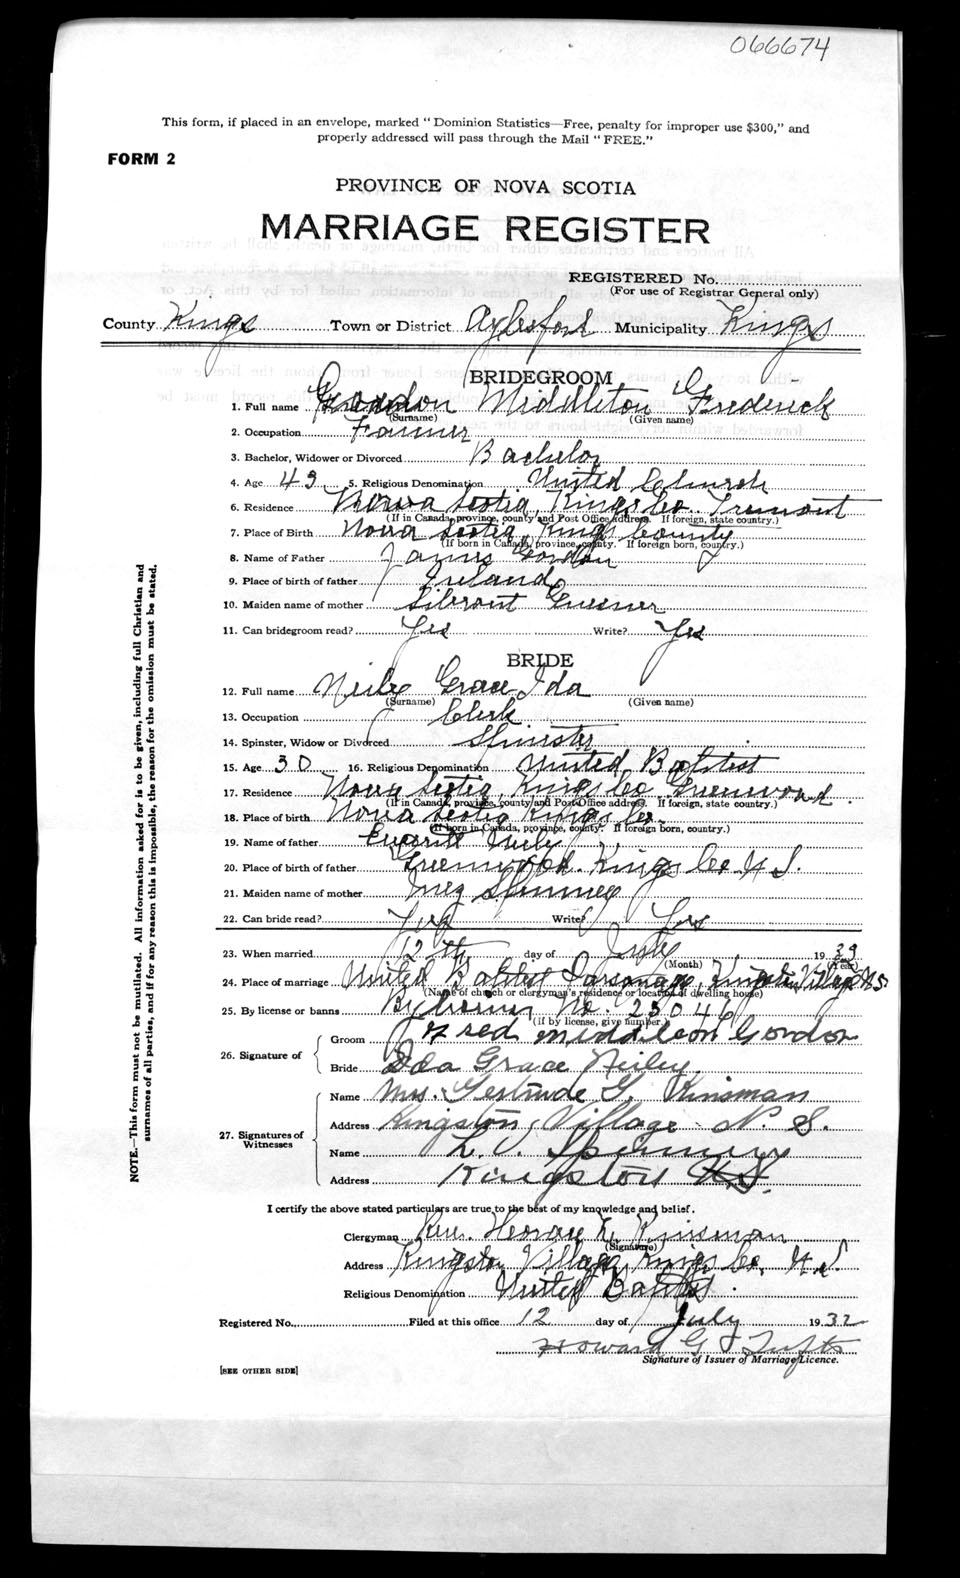 066674
This form, if placed in an envelope, marked "Dominion Statistics—Free, penalty for improper use $300," and
properly addressed will pass through the Mail "FREE."
FORM 2
PROVINCE OF NOVA SCOTIA
MARRIAGE REGISTER
REGISTERED No.
(For use of Registrar General only)
County Kings Town or District Aylesford Municipality Kings
BRIDEGROOM
1. Full name Gordon Middleton Frederick
(Surname) (Given name)
2. Occupation Farmer
3. Bachelor, Widower or Divorced Bachelor
4. Age 43 5. Religious Denomination United Church
6. Residence Nova Scotia, Kings Co. Tremont
(If in Canada, province, county and Post Office address. If foreign, state country.)
7. Place of Birth Nova Scotia, Kings County
(If born in Canada, province, county. If foreign born, country.)
8. Name of Father James Gordon
9. Place of birth of father Ireland
10. Maiden name of mother
11. Can bridegroom read? Yes Write? Yes
BRIDE
12. Full name Neily Grace Ida
(Surname) (Given name)
13. Occupation Clerk
14. Spinster, Widow or Divorced Spinster
15. Age 30 16. Religious Denomination United Baptist
17. Residence Nova Scotia, Kings Co. Greenwood.
(If in Canada, province, county and Post Office address. If foreign, state country.)
18. Place of birth Nova Scotia Kings Co.
(If born in Canada, province, county. If foreign born, country.)
19. Name of father Neily
20. Place of birth of father Greenwood. Kings Co N.S.
21. Maiden name of mother Spinney
22. Can bride read? Yes Write? Yes
23. When married 12th day of July 19
(Month) (Year)
24. Place of marriage United Baptist Parsonage, Kingston Village N.S
(Name of church or clergyman's residence or location of dwelling house)
25. By license or banns By license No. 25046
(If by license, give number.)
26. Signature of Groom Fred Middleton Gordon
Bride Ida Grace Neily.
27. Signatures of Witnesses
Name Mrs. Gertrude G. Kinsman
Address Kingston Village N. S.
Name L. V. Spinney
Address Kingston N.S.
I certify the above stated particulars are true to the best of my knowledge and belief.
Clergyman Rev. Horace L. Kinsman
(Signature)
Address Kingston Village, Kings Co. N.S
Religious Denomination United Baptist.
Registered No. Filed at this office 12 day of July 1932
Howard G Tufts
Signature of Issuer of Marriage Licence.
[SEE OTHER SIDE]
NOTE.—This form must not be mutilated. All information asked for is to be given, including full Christian and
surnames of all parties, and if for any reason this is impossible, the reason for the omission must be stated.